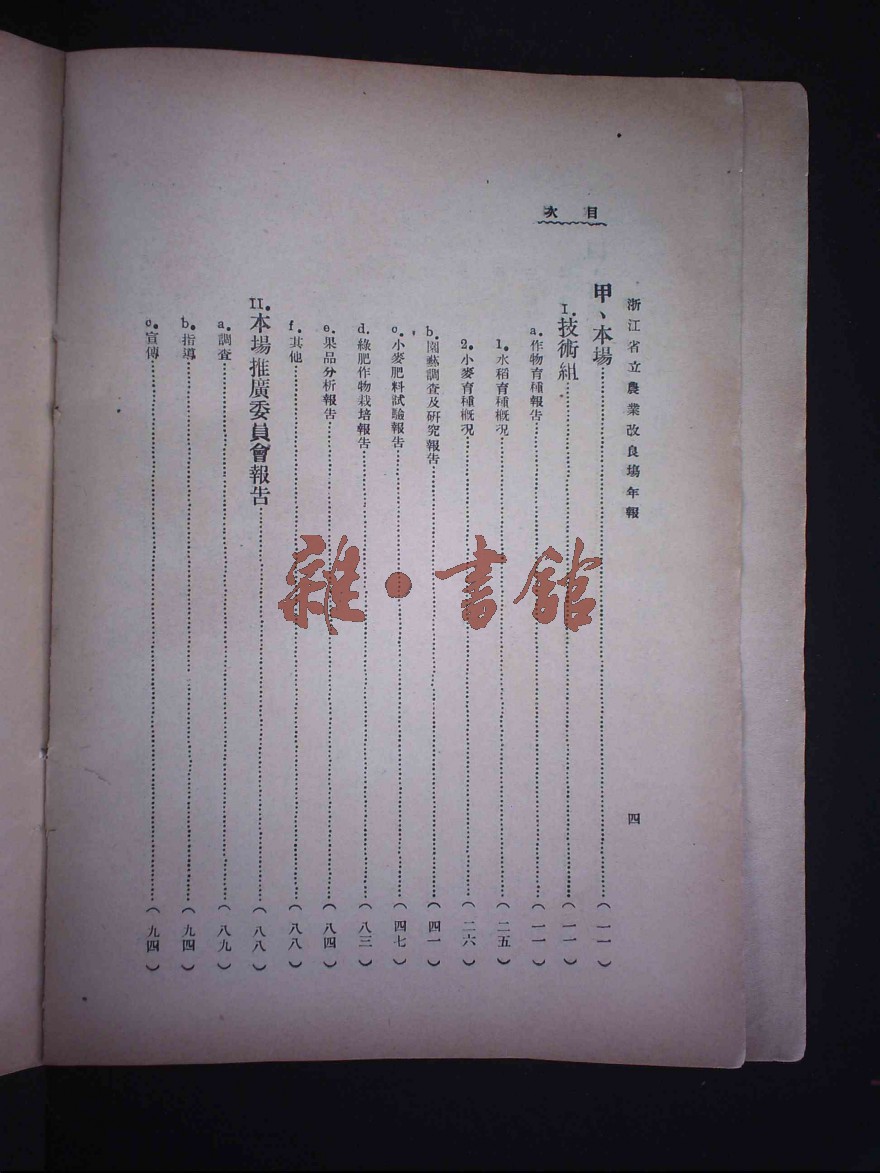 浙江省立農業改良場年報
四
目次
甲、本場………(一一)
I.技術組………(一一)
a.作物育種報告………(一一)
1.水稻育種概況………(二五)
2.小麥育種概況………(二六)
b.園藝調查及研究報告………(四一)
c.小麥肥料試驗報告………(四七)
d.綠肥作物栽培報告………(八三)
e.果品分析報告………(八四)
f.其他………(八八)
II.本場推廣委員會報告………(八八)
a.調查………(八九)
b.指導………(九四)
c.宣傳………(九四)
雜·書館